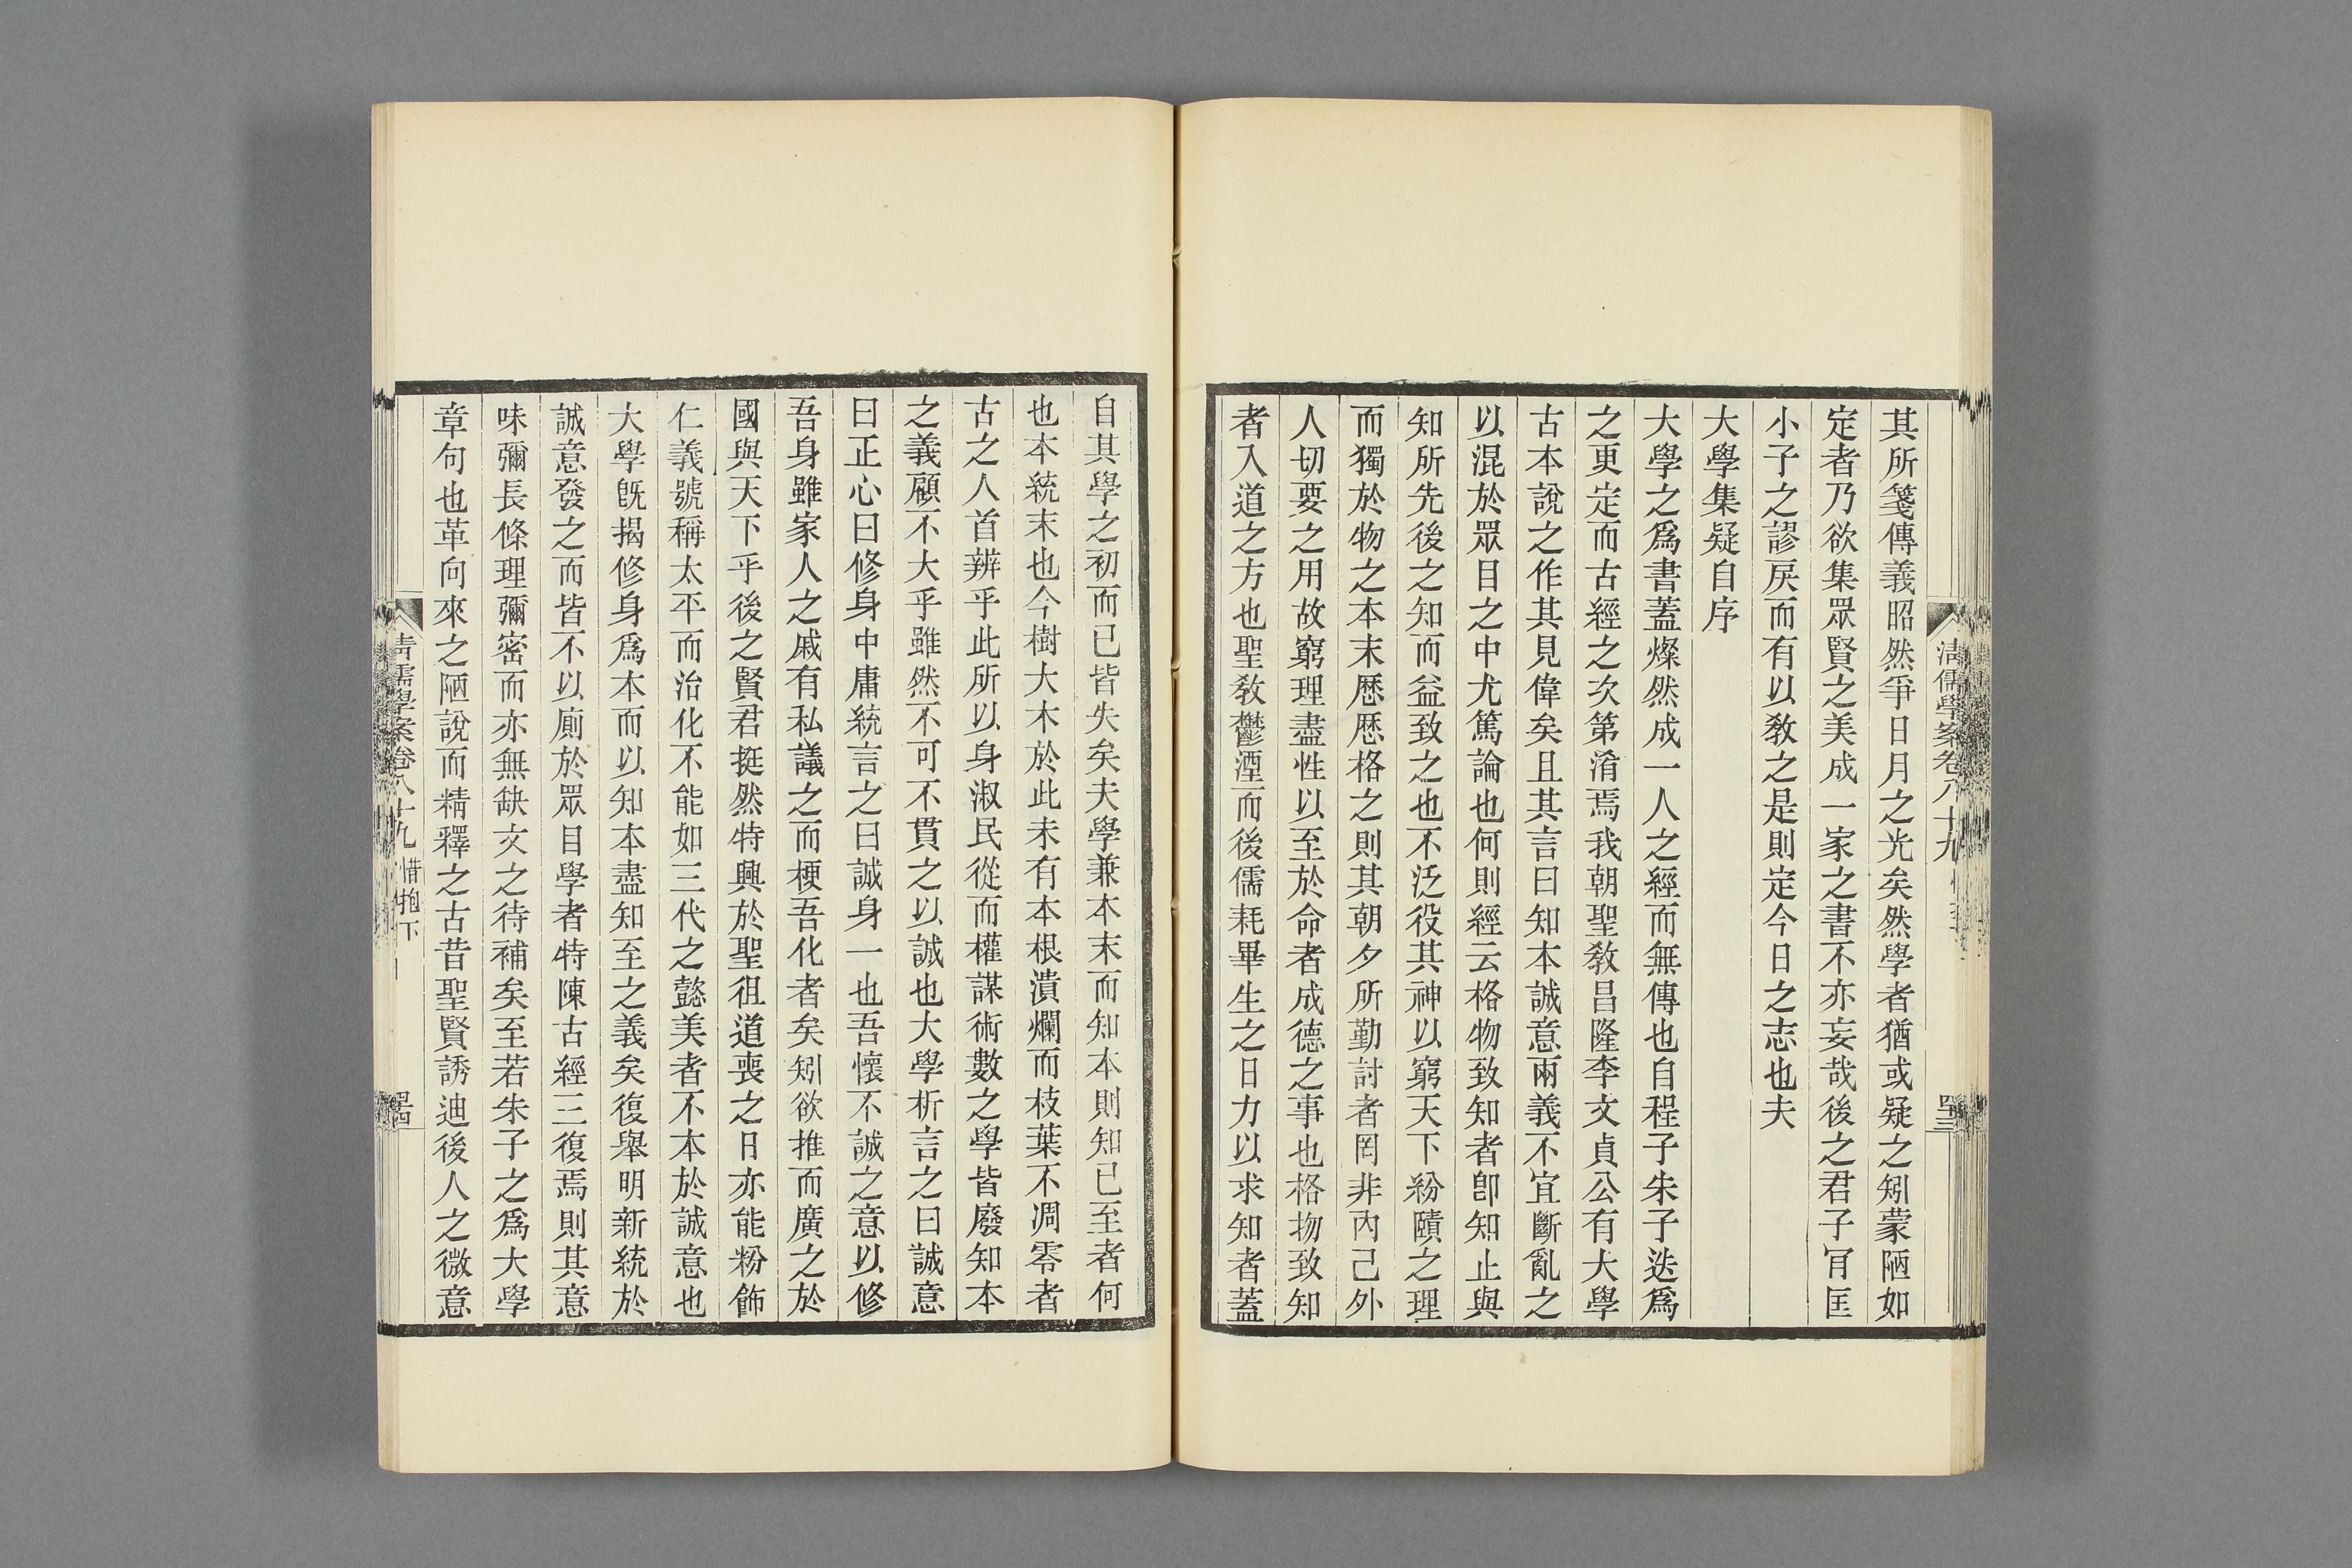 其所箋傳義昭然爭日月之光矣然學者猶或疑之矧蒙陋如
定者乃欲集眾賢之美成一家之書不亦妄哉後之君子肎匡
小子之謬戾而有以敎之是則定今日之志也夫
大學集疑自序
大學之爲書蓋燦然成一人之經而無傳也自程子朱子迭爲
之更定而古經之次第淆焉我朝聖敎昌隆李文貞公有大學
古本說之作其見偉矣且其言曰知本誠意兩義不宜斷亂之
以混於眾目之中尤篤論也何則經云格物致知者卽知止與
知所先後之知而益致之也不泛役其神以窮天下紛賾之理
而獨於物之本末歷歷格之則其朝夕所勤討者罔非內己外
人切要之用故窮理盡性以至於命者成德之事也格物致知
者入道之方也聖敎鬱湮而後儒耗畢生之日力以求知者蓋
清儒學案卷八十九
四十三
自其學之初而已皆失矣夫學兼本末而知本則知已至者何
也本統末也今樹大木於此未有本根潰爛而枝葉不凋零者
古之人首辨乎此所以身淑民從而權謀術數之學皆廢知本
之義顧不大乎雖然不可不貫之以誠也大學析言之曰誠意
曰正心曰修身中庸統言之曰誠身一也吾懷不誠之意以修
吾身雖家人之戚有私議之而梗吾化者矣矧欲推而廣之於
國與天下乎後之賢君挺然特興於聖徂道喪之日亦能粉飾
仁義號稱太平而治化不能如三代之懿美者不本於誠意也
大學旣揭修身爲本而以知本盡知至之義矣復舉明新統於
誠意發之而皆不以廁於眾目學者特陳古經三復焉則其意
味彌長條理彌密而亦無缺文之待補矣至若朱子之爲大學
章句也革向來之陋說而精釋之古昔聖賢誘迪後人之微意
清儒學案卷八十九 惜抱下
四十四